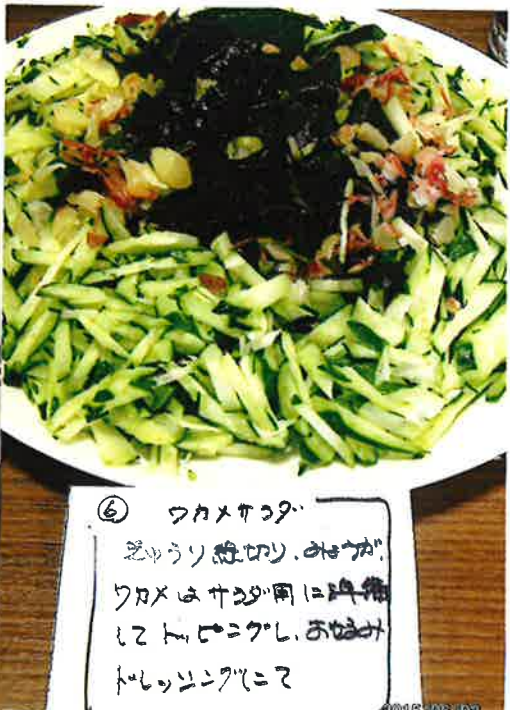 ⑥ ワカメサラダ
きゅうり線切り、みょうが、
ワカメはサラダ用に準備
してトッピングし、お好み
ドレッシングにて